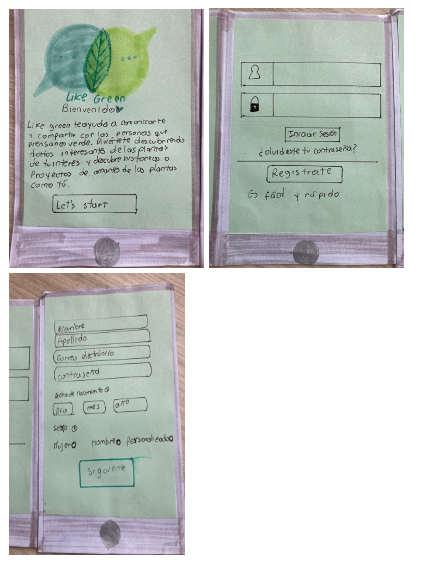 Like Green
Bienvenido
Like green te ayuda a comunicarte
y compartir con las personas que
piensan verde. Diviértete descubriendo
datos interesantes de las plantas
de tu interés y descubre historias o
Proyectos de amantes de las plantas
como tú.
Let's start
Iniciar Sesión
¿olvidaste tu contraseña?
Registrate
Es fácil y rápido
Nombre
Apellido
Correo electrónico
contraseña
fecha de nacimiento
Día mes año
Sexo
Mujer hombre Personalizado
Sigueme